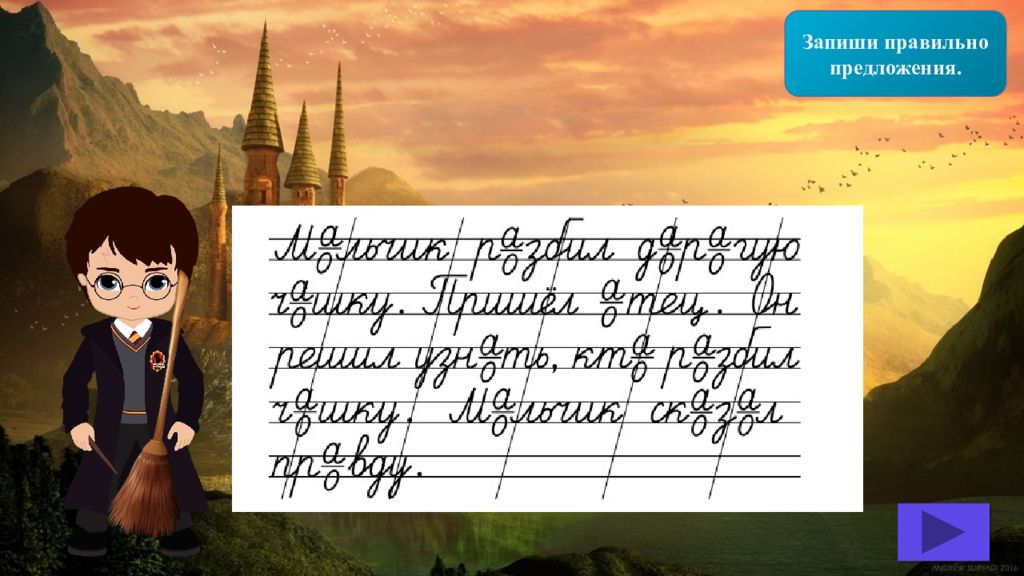 Запиши правильно
предложения.
Ма/ольчик ра/озбил да/ора/огую
ча/ошку. Пришёл а/отец. Он
решил узна/оть, кта/о ра/озбил
ча/ошку. Ма/ольчик ска/оза/ол
пра/овду.
ANDREW SURYADI 2016